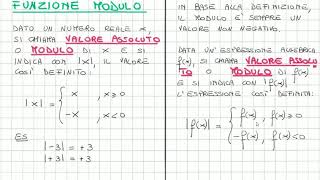 FUNZIONE MODULO
DATO UN NUMERO REALE x,
SI CHIAMA VALORE ASSOLUTO
O MODULO DI x E SI
INDICA CON |x|, IL VALORE
COSI' DEFINITO:
|x| = { x , x ≥ 0
-x , x < 0
ES
|-3| = +3
|+3| = +3
IN BASE ALLA DEFINIZIONE,
IL MODULO È SEMPRE UN
VALORE NON NEGATIVO.
DATA UN'ESPRESSIONE ALGEBRICA
f(x), SI CHIAMA VALORE ASSOLU
TO O MODULO DI f(x)
E SI INDICA CON |f(x)|
L'ESPRESSIONE COSI' DEFINITA:
|f(x)| = { f(x) , f(x) ≥ 0
-f(x) , f(x) < 0